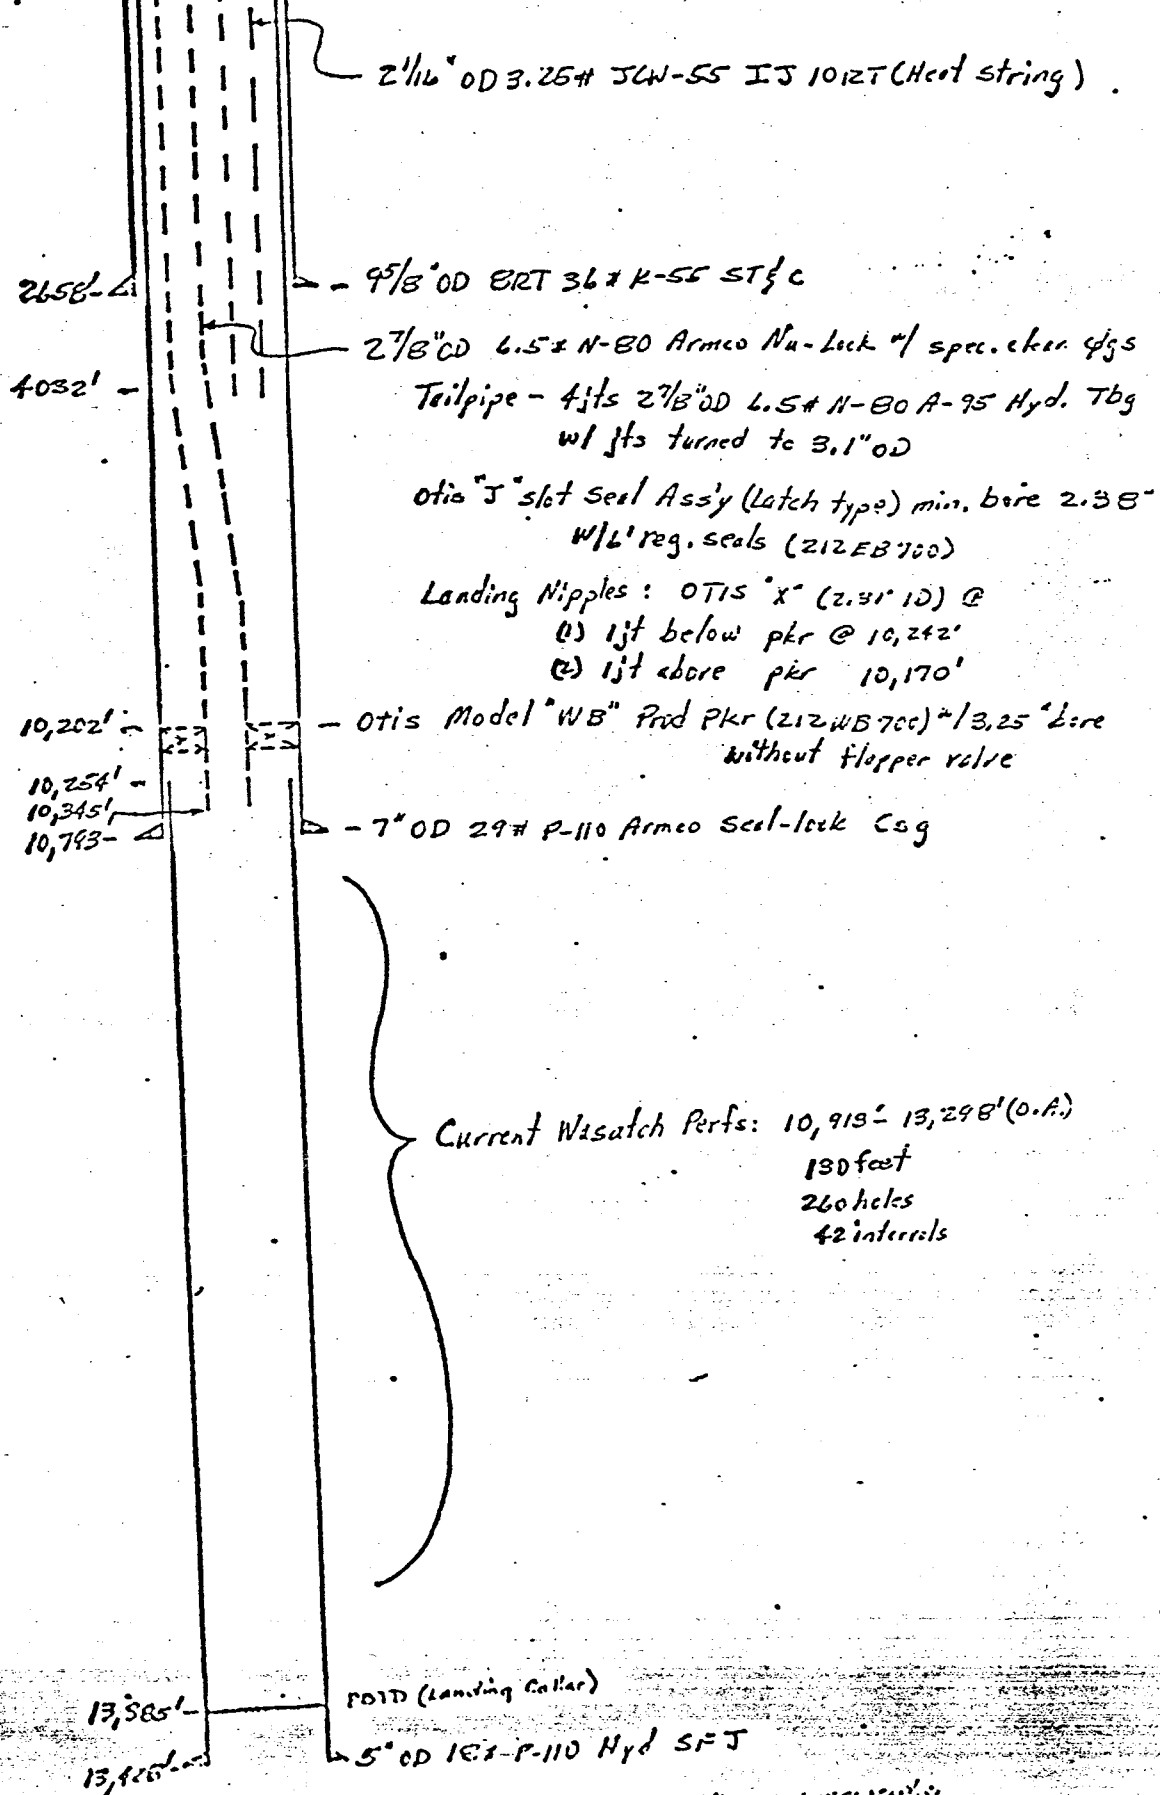 2 1/16" OD 3.25# JCW-55 IJ 10RT (Heat string)
2658'-
- 9 5/8" OD 8RT 36# K-55 ST&C
2 7/8" OD 6.5# N-80 Armco Nu-Lock w/ spec. clear. cplgs
4032' -
Tailpipe - 4jts 2 7/8" OD 6.5# N-80 A-95 Hyd. Tbg
w/ jts turned to 3.1" OD
Otis "J" slot Seal Ass'y (Latch type) min. bore 2.38"
W/6' reg. seals (212EB700)
Landing Nipples: OTIS "X" (2.31" ID) @
(1) 1jt below pkr @ 10,242'
(2) 1jt above pkr 10,170'
10,202' -
- Otis Model "WB" Prod Pkr (212WB700) w/3.25" bore
without flapper valve
10,254' -
10,345'
10,793-
- 7" OD 29# P-110 Armco Seal-lock Csg
Current Wasatch Perfs: 10,913'- 13,298' (O.A.)
130 feet
260 holes
42 intervals
PBTD (Landing Collar)
13,385'-
5" OD 18#-P-110 Hyd SFJ